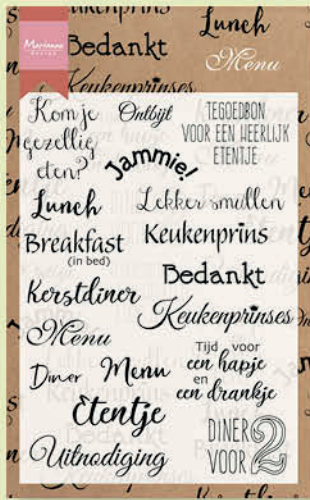 Lunch
Marianne
design
Bedankt
Menu
Keukenprinses
Kom je
gezellig
eten?
Ontbijt
TEGOEDBON
VOOR EEN HEERLIJK
ETENTJE
Jammie!
Lunch
Lekker smullen
Breakfast
(in bed)
Keukenprins
Bedankt
Kerstdiner
Keukenprinses
Menu
Tijd voor
een hapje
en
een drankje
Diner
Menu
Etentje
DINER
VOOR 2
Uitnodiging